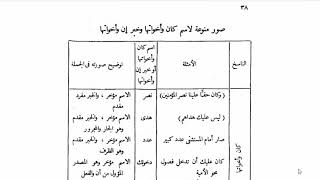 ٣٨
صور منوعة لاسم كان وأخواتها وخبر إن وأخواتها
الناسخ
الأمثلة
اسم كان
أو خبر إن
وأخواتها
توضيح صورته فى الجملة
كان وأخواتها
(وكان حقًّا علينا نصر المؤمنين)
نصر
الاسم مؤخر ، والخبر مفرد
مقدم
(ليس عليك هداهم)
هدى
الاسم مؤخر ، والخبر مقدم
وهو الجار والمجرور
صار أمام المستشفى عدد كبير
عدد
الاسم مؤخر ، والخبر مقدم
وهو الظرف
كان عليك أن تدخلى فصول
نحو الأمية
دخولك
الاسم مؤخر وهو المصدر
المؤول من أن والفعل